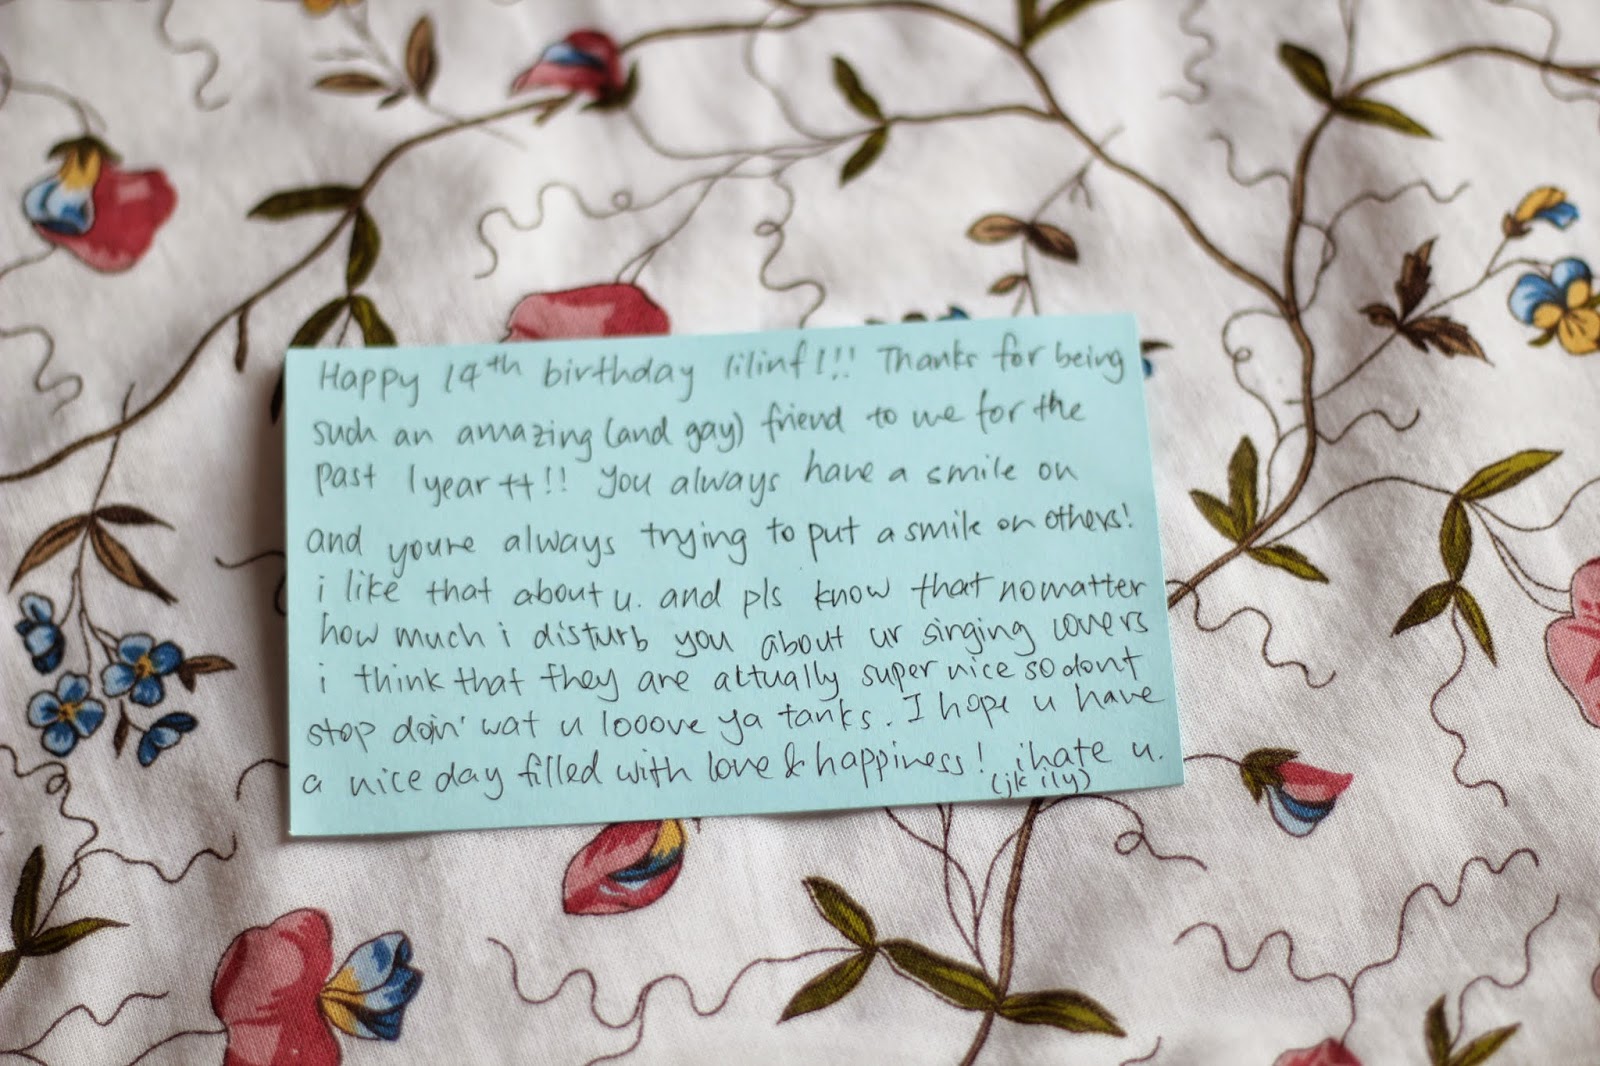 Happy 14th birthday lilinf!!! Thanks for being
such an amazing (and gay) friend to me for the
past 1 year ++!! You always have a smile on
and youre always trying to put a smile on others!
i like that about u. and pls know that no matter
how much i disturb you about ur singing covers
i think that they are actually super nice so dont
stop doin' wat u looove ya tanks. I hope u have
a nice day filled with love & happiness! i hate u.
(jk ily)